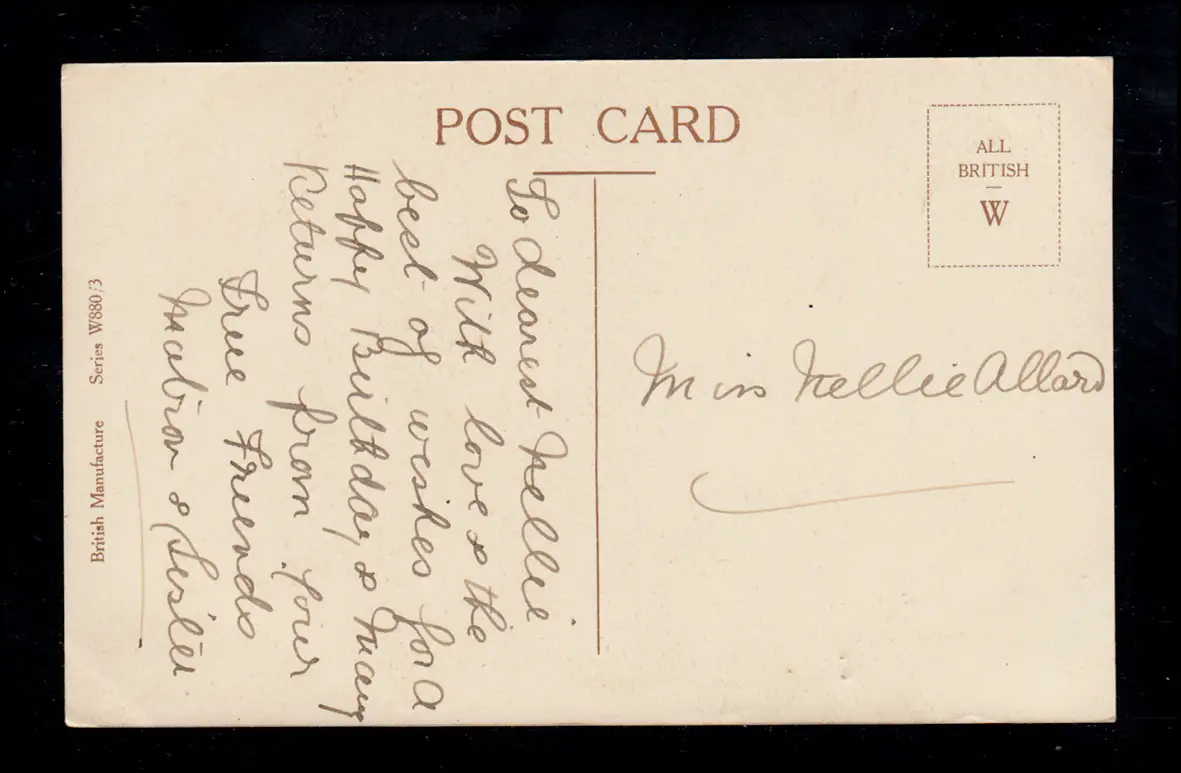 POST CARD
ALL
BRITISH
W
To dearest Nellie
With love & the
best of wishes for a
Happy Birthday & Many
Returns from your
True Friends
&
Miss Nellie Allard
British Manufacture Series W880/3